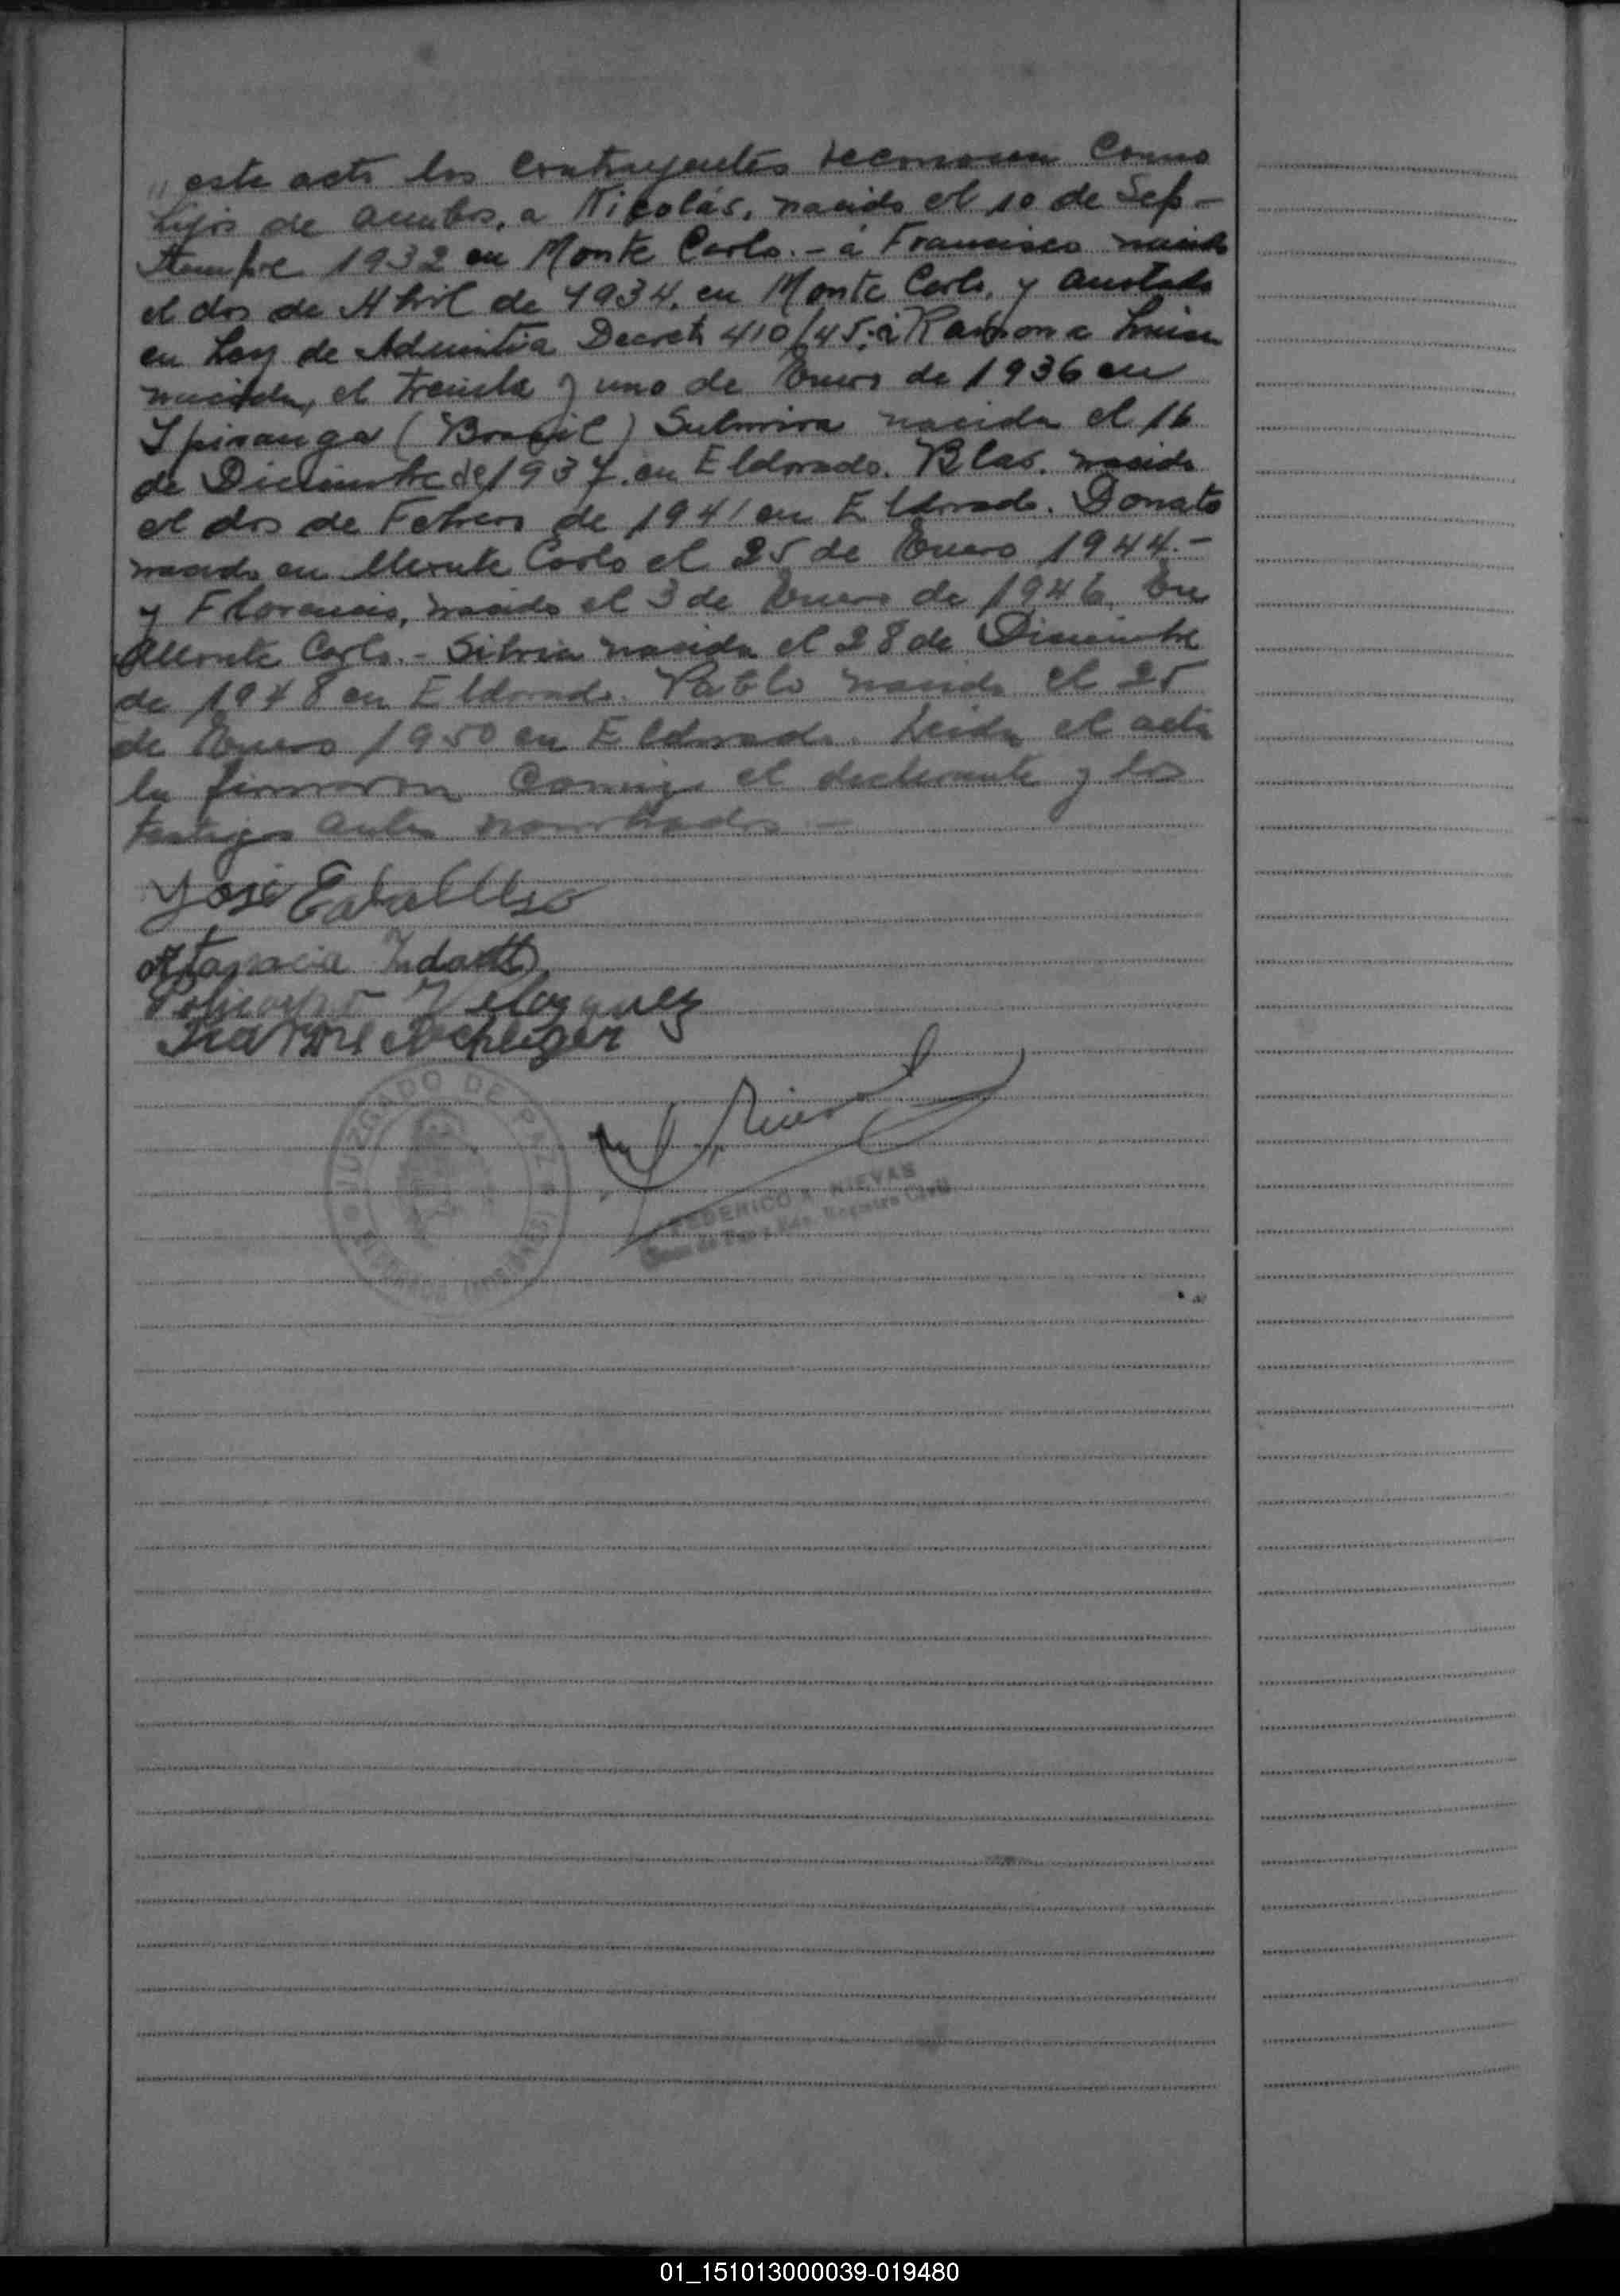 " este acto los contrayentes reconocen como
hijos de ambos, a Nicolás, nacido el 10 de Sep-
tiembre 1932 en Monte Carlo.- a Francisco nacido
el dos de Abril de 1934, en Monte Carlo, y anotado
en Ley de Decreto 410/45; a Ramona Luisa
nacida, el treinta y uno de Enero de 1936 en
Ypiranga (Brasil) nacida el 16
de Diciembre de 1937, en Eldorado. Blas, nacido
el dos de Febrero de 1941 en Eldorado. Donato
nacido en Monte Carlo el 25 de Enero 1944.-
y Florencio, nacido el 3 de Enero de 1946. En
Monte Carlo.- Silvia nacida el 28 de Diciembre
de 1948 en Eldorado. Pablo nacido el 25
de Enero 1950 en Eldorado. Leida el acta
la firmaron conmigo el declarante y los
testigos antes nombrados -
José Caballero
Policarpo Velazquez
JUZGADO DE PAZ
FEDERICO A. NIEVAS
Juez de Paz y Edo. Registro Civil
ELDORADO (MISIONES)
01_151013000039-019480